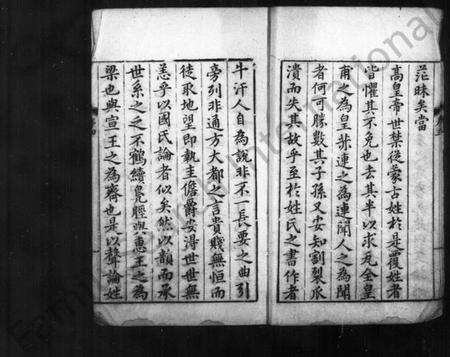 茫昧矣當
高皇帝世禁從蒙古姓於是覆姓者
皆懼其不免也去其半以求兗全皇
甫之為皇葫連之為連聞人之為聞
者何可勝數其子孫又安知割裂瓜
潰而失其故乎至於姓氏之書作者
牛汗人自為說非不一長要之曲引
旁列非通方大都之言貴賤無恒而
徒取地望即執圭儋爵安得世世無
恙乎以國氏論者似矣然以韻而承
世系之乏不鶴續鳧脛與惠王之為
梁也與宣王之為齊也是以聲論姓